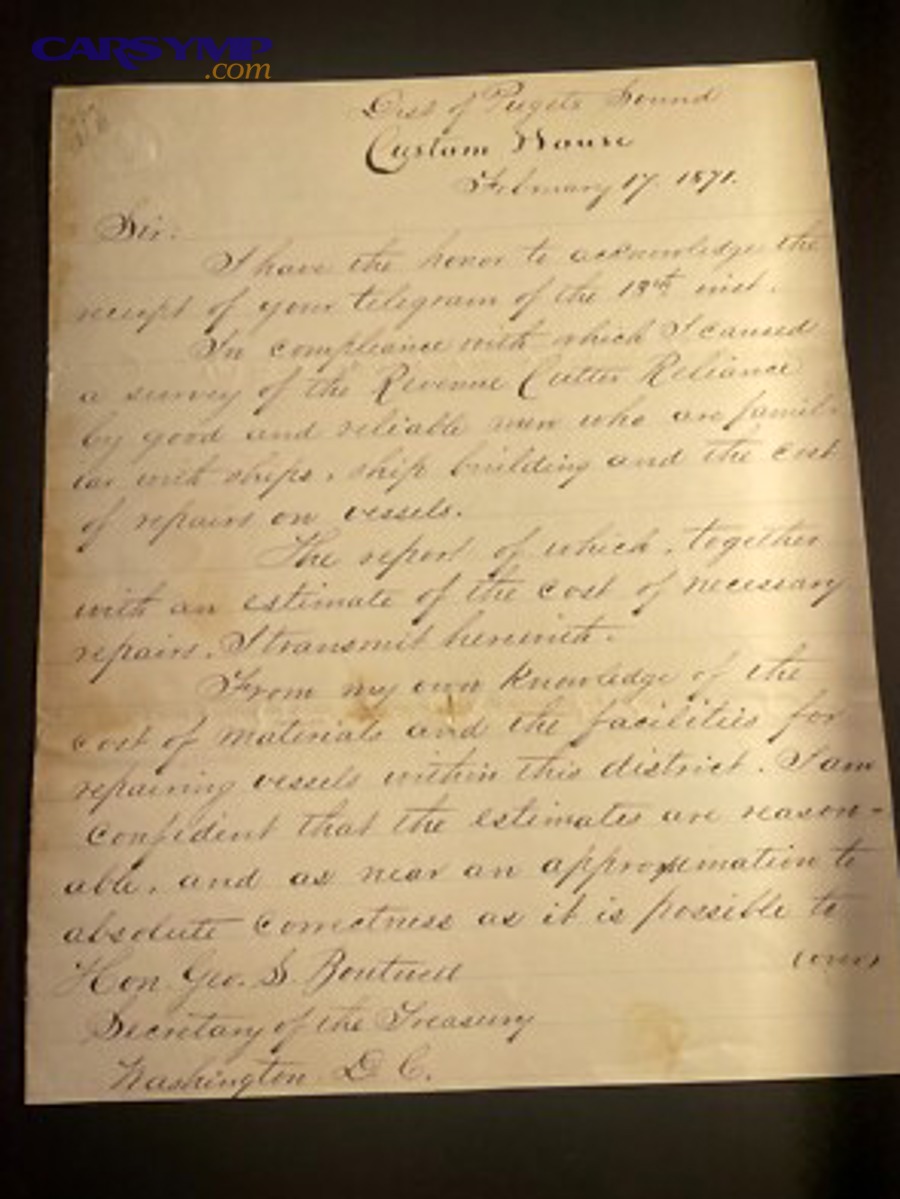 CARSYMP
.com
Dist of Pugets Sound
Custom House
February 17. 1871.
Sir:
I have the honor to acknowledge the
receipt of your telegram of the 13th inst.
In compliance with which I caused
a survey of the Revenue Cutter Reliance
by good and reliable men who are famil-
iar with ships, ship building and the cost
of repairs on vessels.
The report of which, together
with an estimate of the cost of necessary
repairs, I transmit herewith.
From my own knowledge of the
cost of materials and the facilities for
repairing vessels within this district. I am
confident that the estimates are reason-
able, and as near an approximation to
absolute correctness as it is possible to
(over)
Hon. Geo. S. Boutwell
Secretary of the Treasury
Washington D. C.